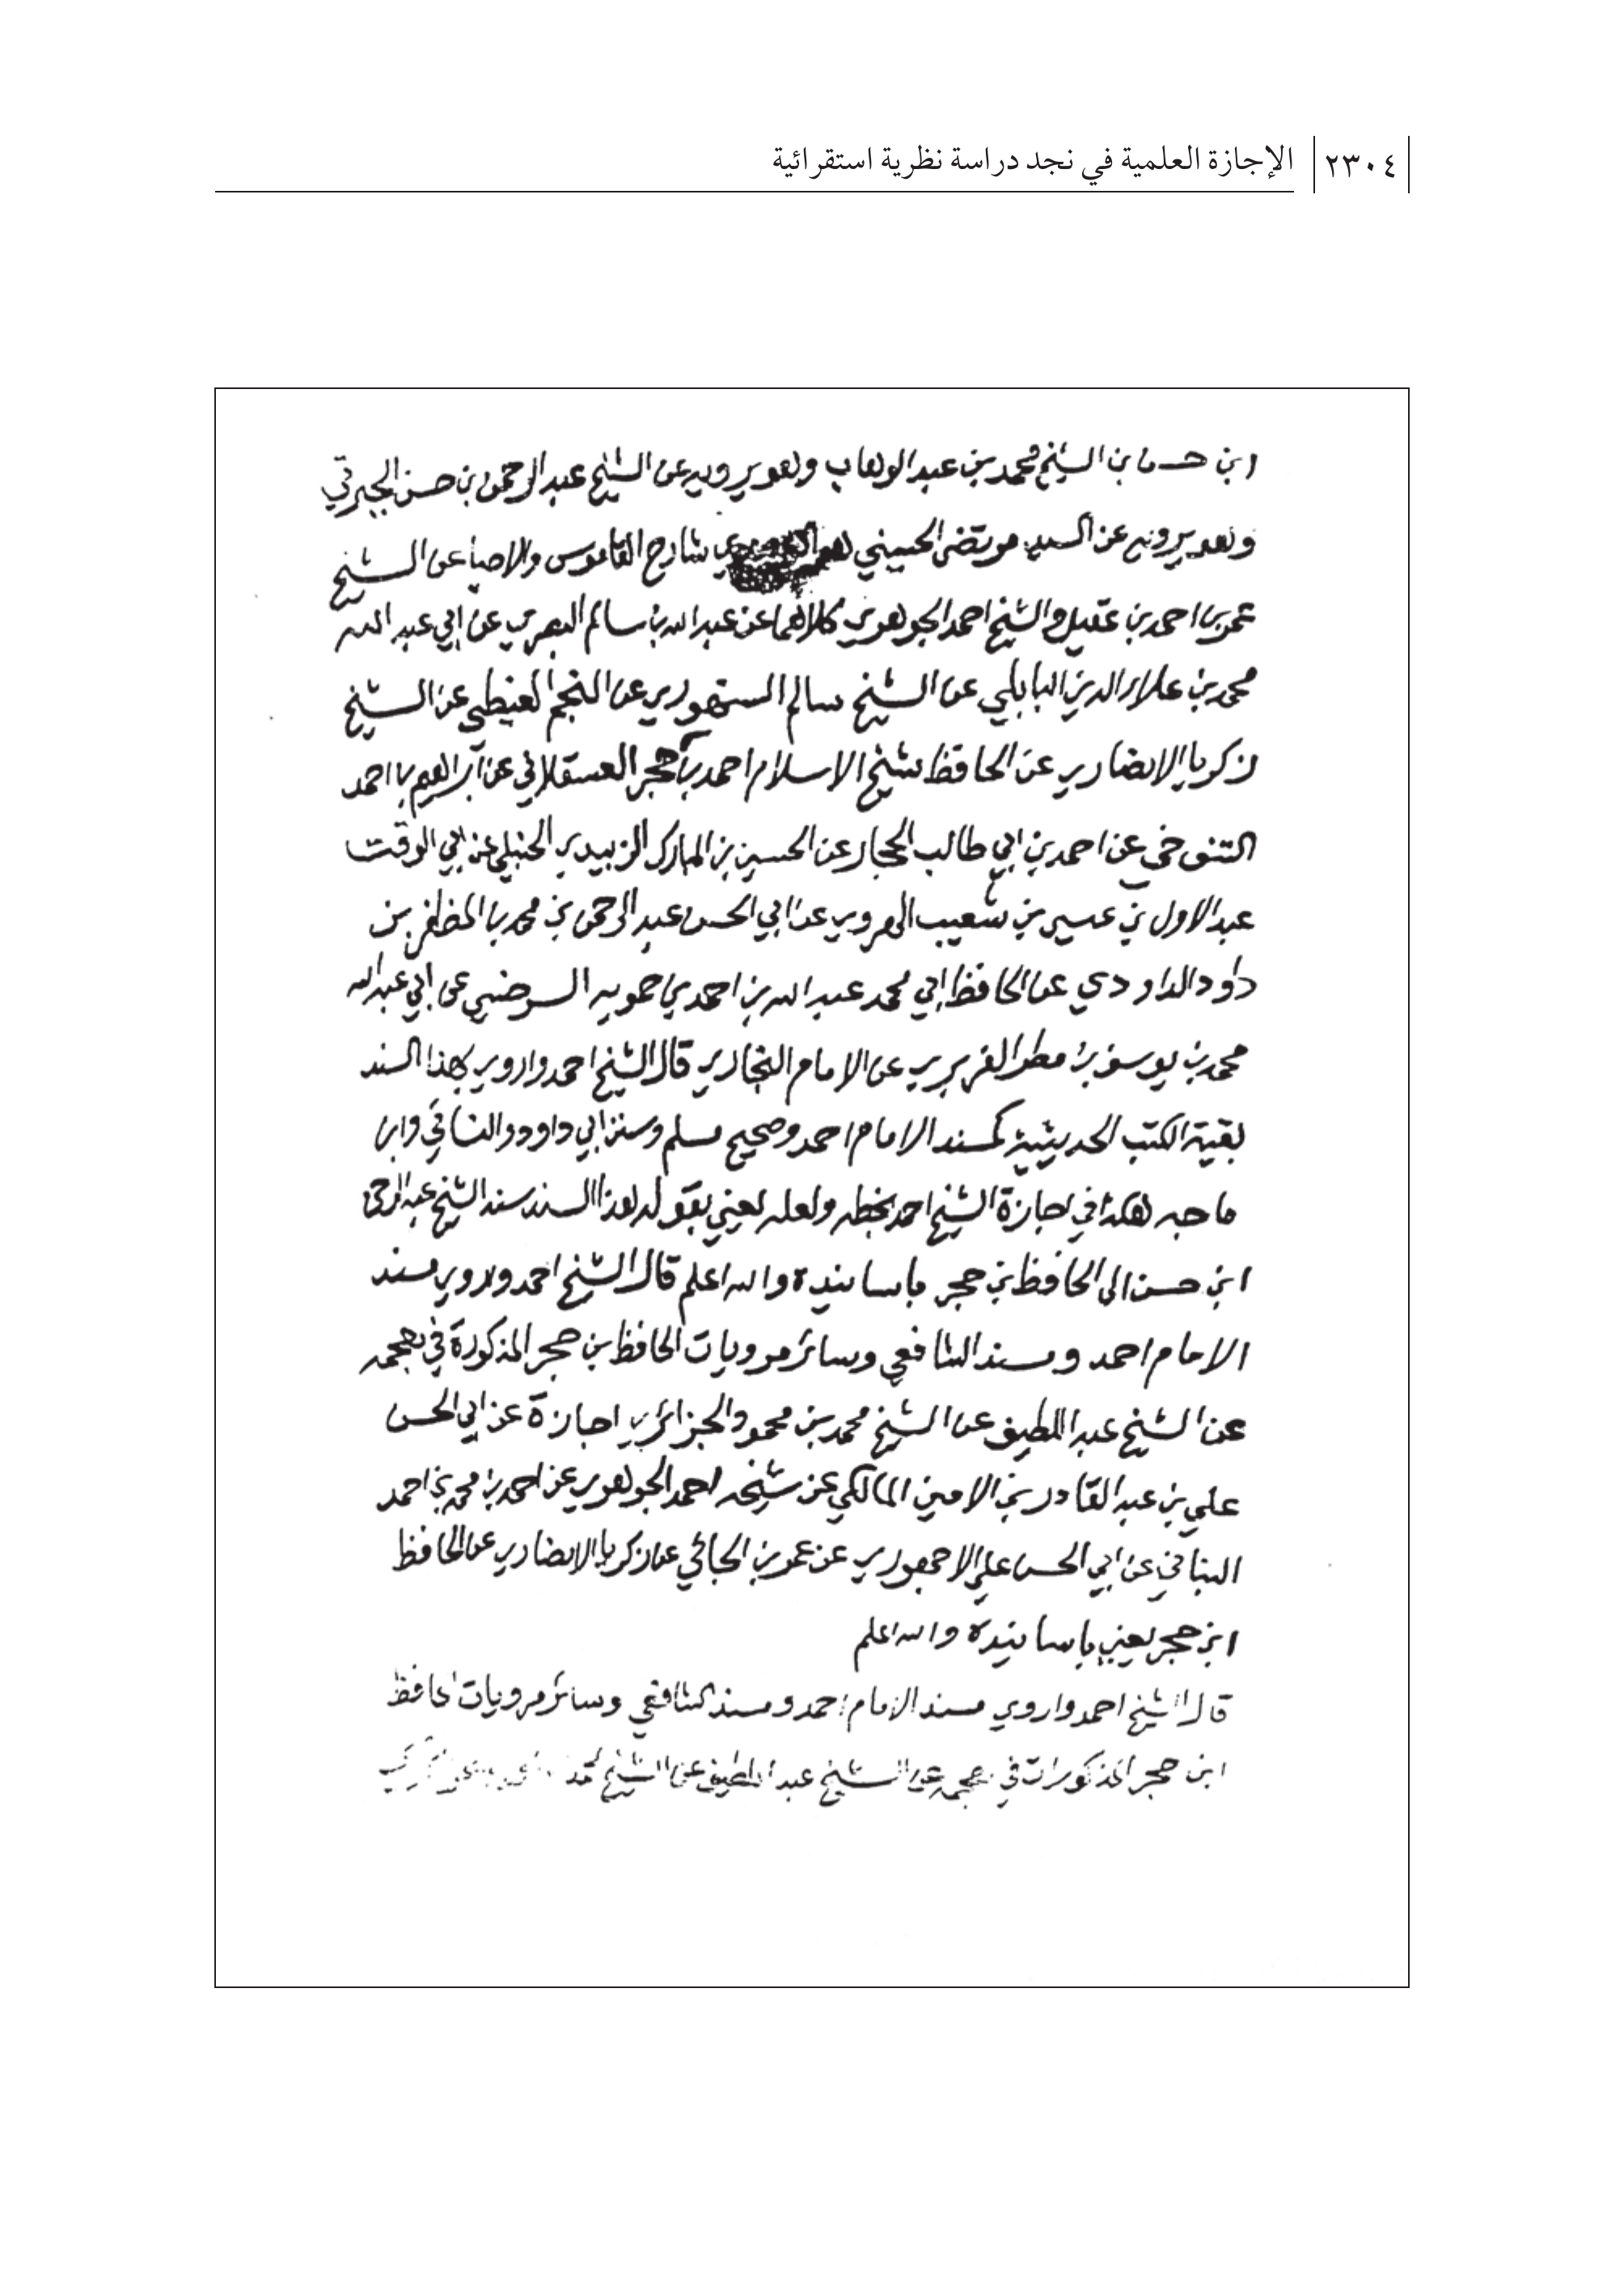 ٢٣٠٤ الإجازة العلمية في نجد دراسة نظرية استقرائية
ابن حسن بن الشيخ محمد بن عبد الوهاب وهو يرويه عن الشيخ عبد الرحمن بن حسن الجبرتي
وهو يرويه عن السيد مرتضى الحسيني شارح القاموس والاحيا عن الشيخ
عمر بن احمد بن عقيل والشيخ احمد الجوهري كلاهما عن عبد الله بن سالم البصري عن ابي عبد الله
محمد بن علاء الدين البابلي عن الشيخ سالم السنهوري عن النجم الغيطي عن الشيخ
زكريا الانصاري عن الحافظ شيخ الاسلام احمد بن حجر العسقلاني عن ابراهيم بن احمد
التنوخي عن احمد بن ابي طالب الحجار عن الحسين بن المبارك الزبيدي الحنبلي عن ابي الوقت
عبد الاول بن عيسى بن شعيب الهروي عن ابي الحسن عبد الرحمن بن محمد بن المظفر بن
داود الداودي عن الحافظ ابي محمد عبد الله بن احمد بن حمويه السرخسي عن ابي عبد الله
محمد بن يوسف بن مطر الفربري عن الامام البخاري قال الشيخ احمد واروي بهذا السند
بقية الكتب الحديثية كمسند الامام احمد وصحيح مسلم وسنن ابي داود والنسائي وابن
ماجه هكذا في اجازة الشيخ احمد بخطه ولعله يعني بقوله بهذا السند سند الشيخ عبد الرحمن
ابن حسن الى الحافظ بن حجر باسانيده والله اعلم قال الشيخ احمد واروي مسند
الامام احمد ومسند الشافعي وسائر مرويات الحافظ بن حجر المذكورة في معجمه
عن الشيخ عبد اللطيف عن الشيخ محمد بن محمود الجزائري اجازة عن ابي الحسن
علي بن عبد القادر بن الامين المالكي عن شيخه احمد الجوهري عن احمد بن محمد بن احمد
البنا عن ابي الحسن علي الاجهوري عن عمر بن الجائي عن زكريا الانصاري عن الحافظ
ابن حجر يعني باسانيده والله اعلم
قال الشيخ احمد واروي مسند الامام احمد ومسند الشافعي وسائر مرويات الحافظ
ابن حجر المذكورات في معجمه عن الشيخ عبد اللطيف عن الشيخ محمد